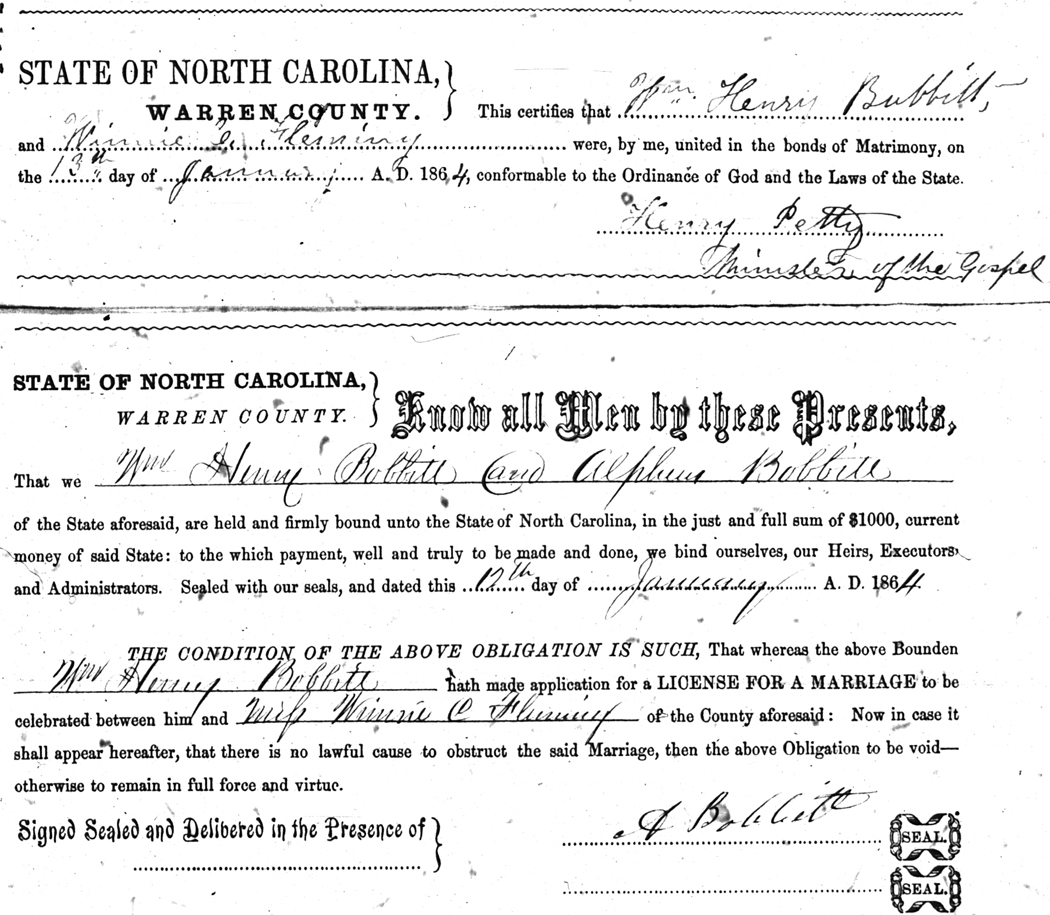 STATE OF NORTH CAROLINA,
WARREN COUNTY. This certifies that Wm. Henry Bobbitt,
and Winnie C. Fleming were, by me, united in the bonds of Matrimony, on
the 13th day of January A. D. 1864, conformable to the Ordinance of God and the Laws of the State.
Henry Petty
Minister of the Gospel
STATE OF NORTH CAROLINA,
WARREN COUNTY. Know all Men by these Presents,
That we Wm Henry Bobbitt and Alpheus Bobbitt
of the State aforesaid, are held and firmly bound unto the State of North Carolina, in the just and full sum of $1000, current
money of said State: to the which payment, well and truly to be made and done, we bind ourselves, our Heirs, Executors
and Administrators. Sealed with our seals, and dated this 12th day of January A. D. 1864
THE CONDITION OF THE ABOVE OBLIGATION IS SUCH, That whereas the above Bounden
Wm Henry Bobbitt hath made application for a LICENSE FOR A MARRIAGE to be
celebrated between him and Miss Winnie C Fleming of the County aforesaid: Now in case it
shall appear hereafter, that there is no lawful cause to obstruct the said Marriage, then the above Obligation to be void—
otherwise to remain in full force and virtue.
Signed Sealed and Delibered in the Presence of
A Bobbitt SEAL.
SEAL.